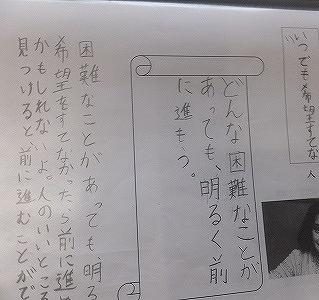 いつでも希望すてな
人
どんな困難なことが
あっても、明るく前
に進もう。
困難なことがあっても、明る
希望をすてなかったら前に進め
かもしれないよ。人のいいところ
見つけると、前に進むことがで